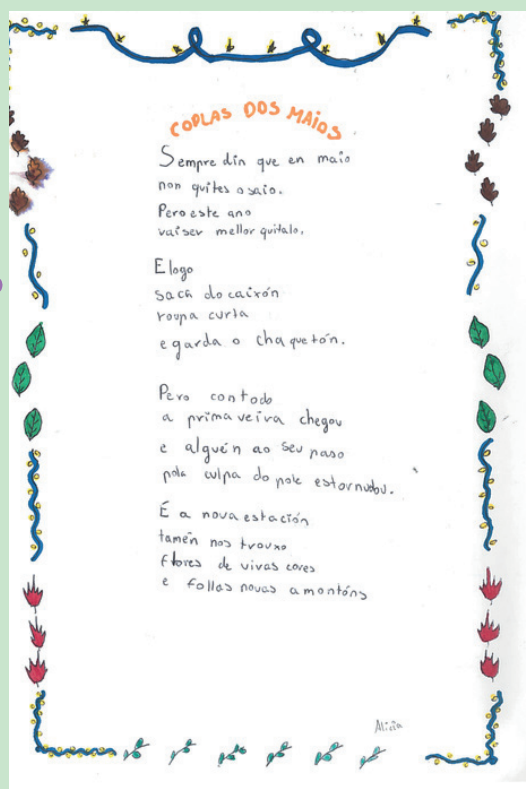 COPLAS DOS MAIOS
Sempre din que en maio
non quites o saio.
Pero este ano
vai ser mellor quitalo.
E logo
saca do caixón
roupa curta
e garda o chaquetón.
Pero con todo
a primaveira chegou
e alguén ao seu paso
pola culpa do pole estornudou.
É a nova estación
tamén nos trouxo
flores de vivas cores
e follas novas a montóns
Alicia